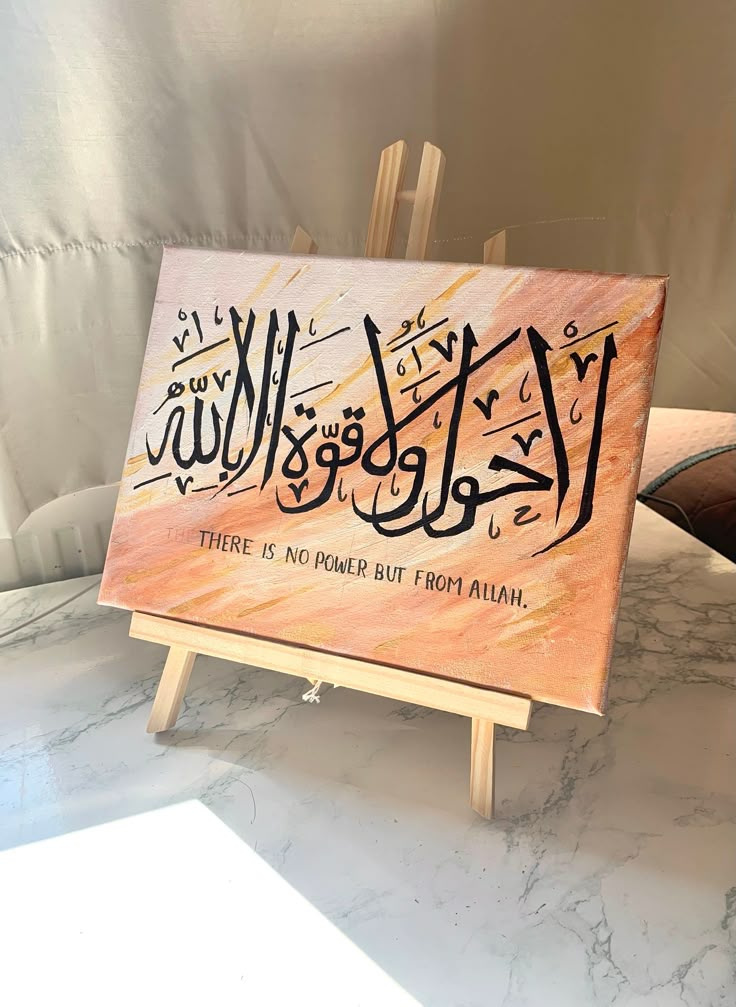 لا حول ولا قوة الا بالله
THERE IS NO POWER BUT FROM ALLAH.